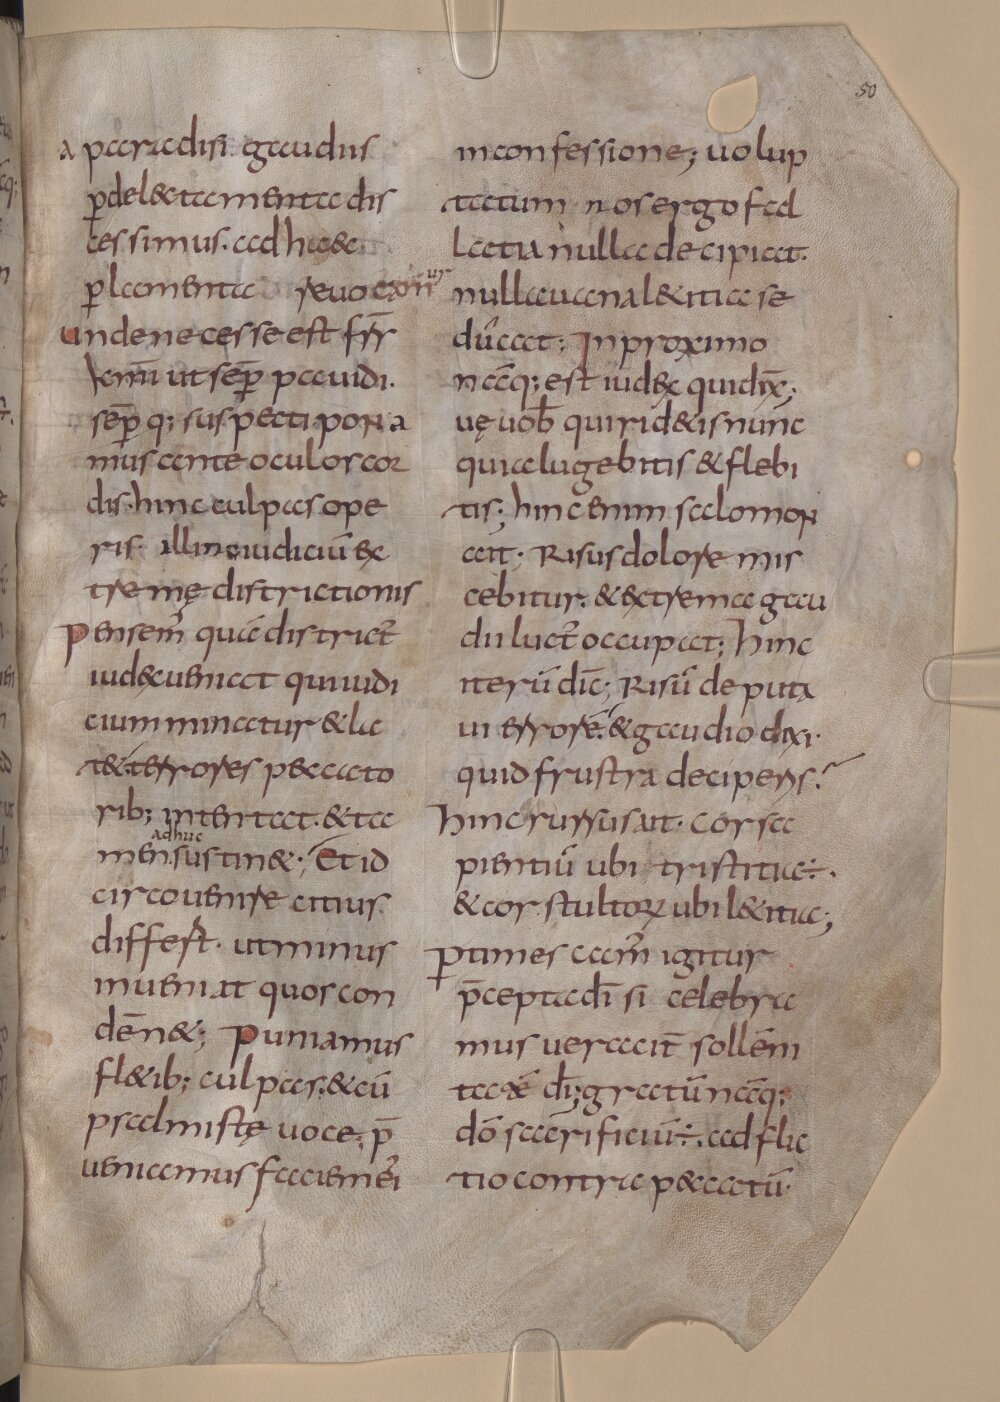 50
A paradisi gaudiis
p̱ delectamenta dis
cessimus. ad haec
p̱ lamenta reuocamur
Unde necesse est fr̄r
kmī ut semp̱ pauidi.
semp̱q; suspecti pona
mus ante oculos cor
dis. hinc culpas ope
ris. illinc iudiciū ex
tremę districtionis
Pensem' quā district'
iudex ueniat qui iudi
cium minatur & la
t&. terrores peccato
rib; intentat. & ta
adhuc
men sustin&; Et id
circo uenire citius
differt. ut minus
inueniat quos con
demn&; Puniamus
fl&ib; culpas. & cū
psalmistę uoce. p̄
ueniamus faciem ei'
in confessione; uolup
tatum nos ergo fal
lacia nulla decipiat.
nulla uana l&itia se
ducat; In proximo
nāq; est iudex qui dix̄;
uę uob̄ qui rid&is nunc
quia lugebitis & flebi
tis; hinc enim salomon
ait. Risus dolore mis
cebitur. & extrema gau
dii luct' occupat; hinc
iterū dic̄; Risū deputa
ui errorē. & gaudio dixi.
quid frustra deciperis?
hinc rursus ait. Cor sa
pientiū ubi tristitia ÷.
& cor stultorum ubi l&itia;
p̱ timescam' igitur
p̄cepta dī si celebra
mus ueraciť sollēm
tatē dī; gratū nāq;
dō sacrificiū ÷. adflic
tio contra peccatū.